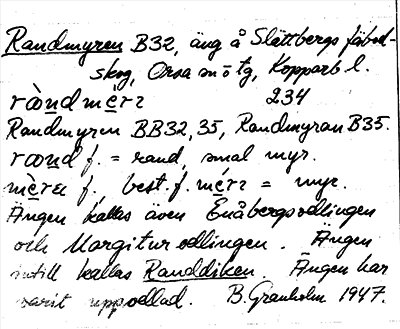 Randmyren B32, äng å Slättbergs fäbod-
skog, Orsa sn o tg, Kopparb l.
ràndmèrɩ 234
Randmyren BB32, 35, Randmyran B35.
rand f. = rand, smal myr.
f, best. f. = myr.
Ängen kallas även Enåbergsodlingen
och Margiturodlingen. Ängen
intill kallas Randdiken. Ängen har
varit uppodlad. B. Granholm 1947.